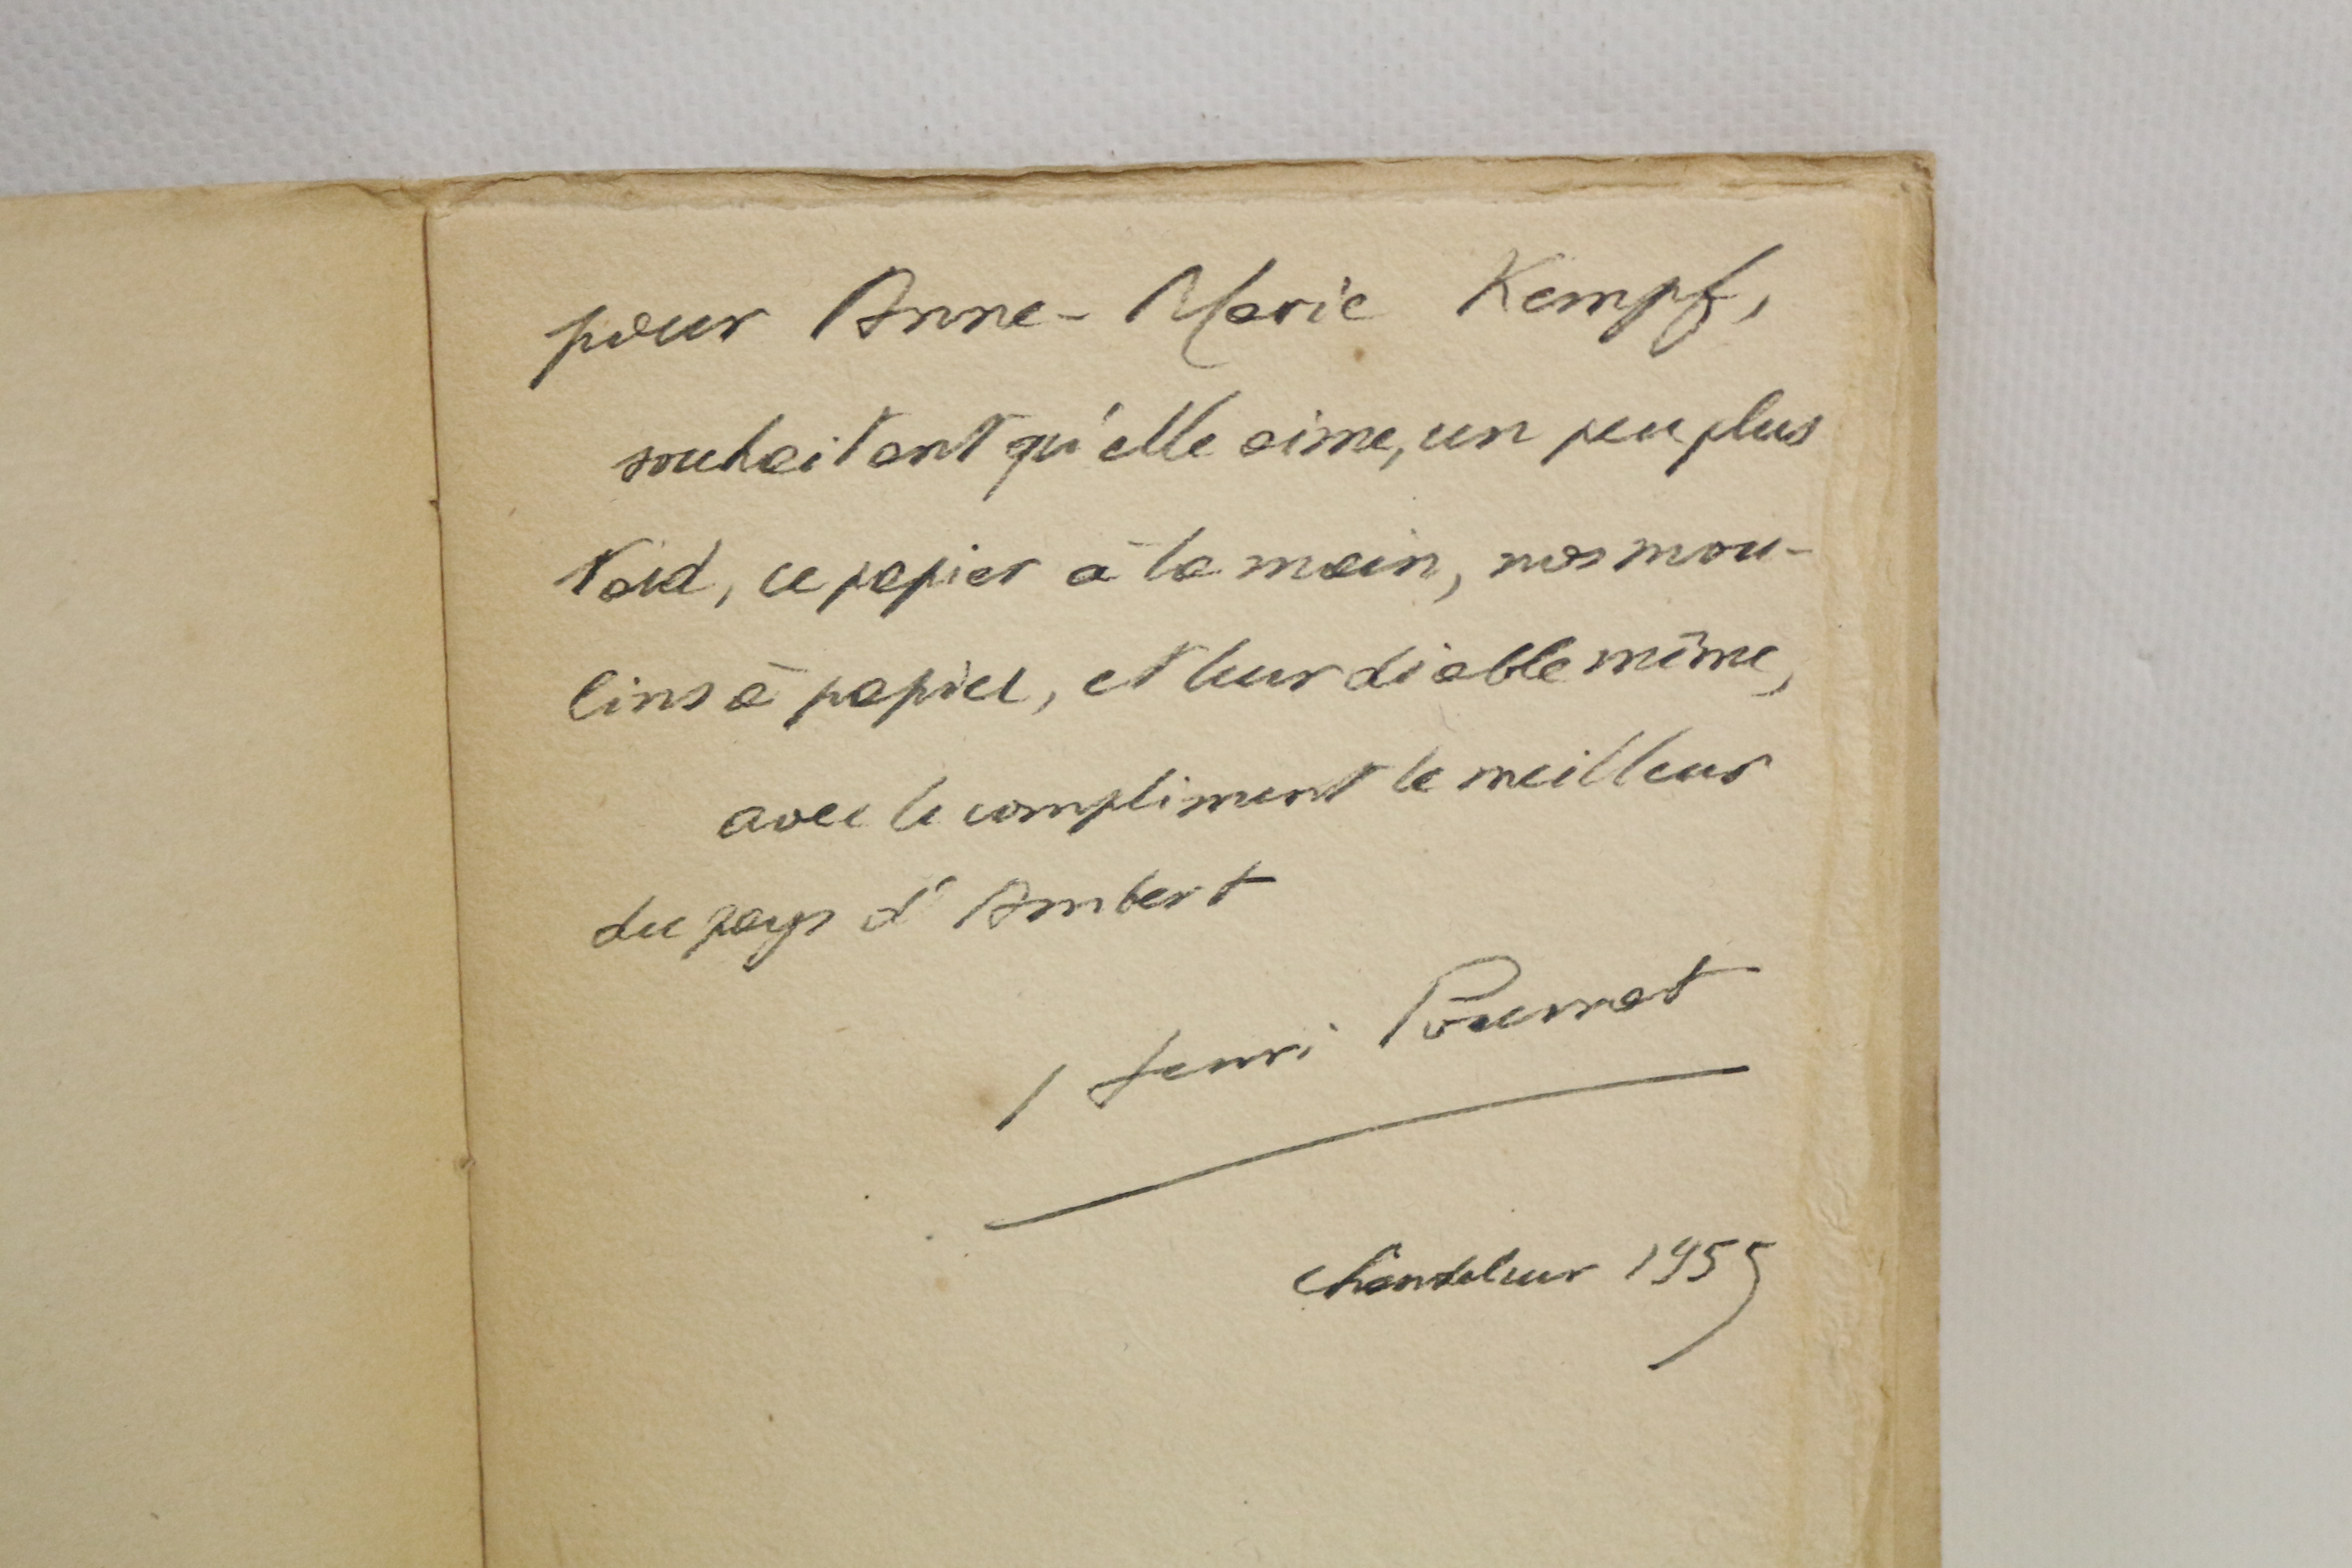 pour Anne-Marie Kempf,
souhaitant qu'elle aime, un peu plus
tard, ce papier à la main, nos mou-
lins à papier, et leur diable même,
avec le compliment le meilleur
du pays d'Ambert
Henri Pourrat
Chandeleur 1955